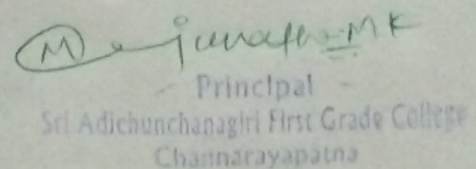 Manjunath MK
Principal
Sri Adichunchanagiri First Grade College
Channarayapatna